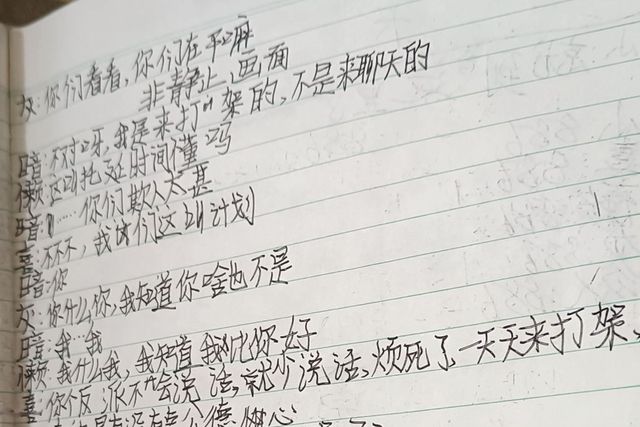 灰:你们看看,你们在干嘛
非静止画面
暗:不对呀,我是来打架的,不是来聊天的
懒:这叫拖延时间懂吗
暗:……你们欺人太甚
喜:不不不,我们这叫计划
暗:你
灰:你什么你,我知道你啥也不是
暗:我…我
懒:我什么我,我知道我比你好
喜:你个反派不会说话,就少说话,烦死了一天天来打架,